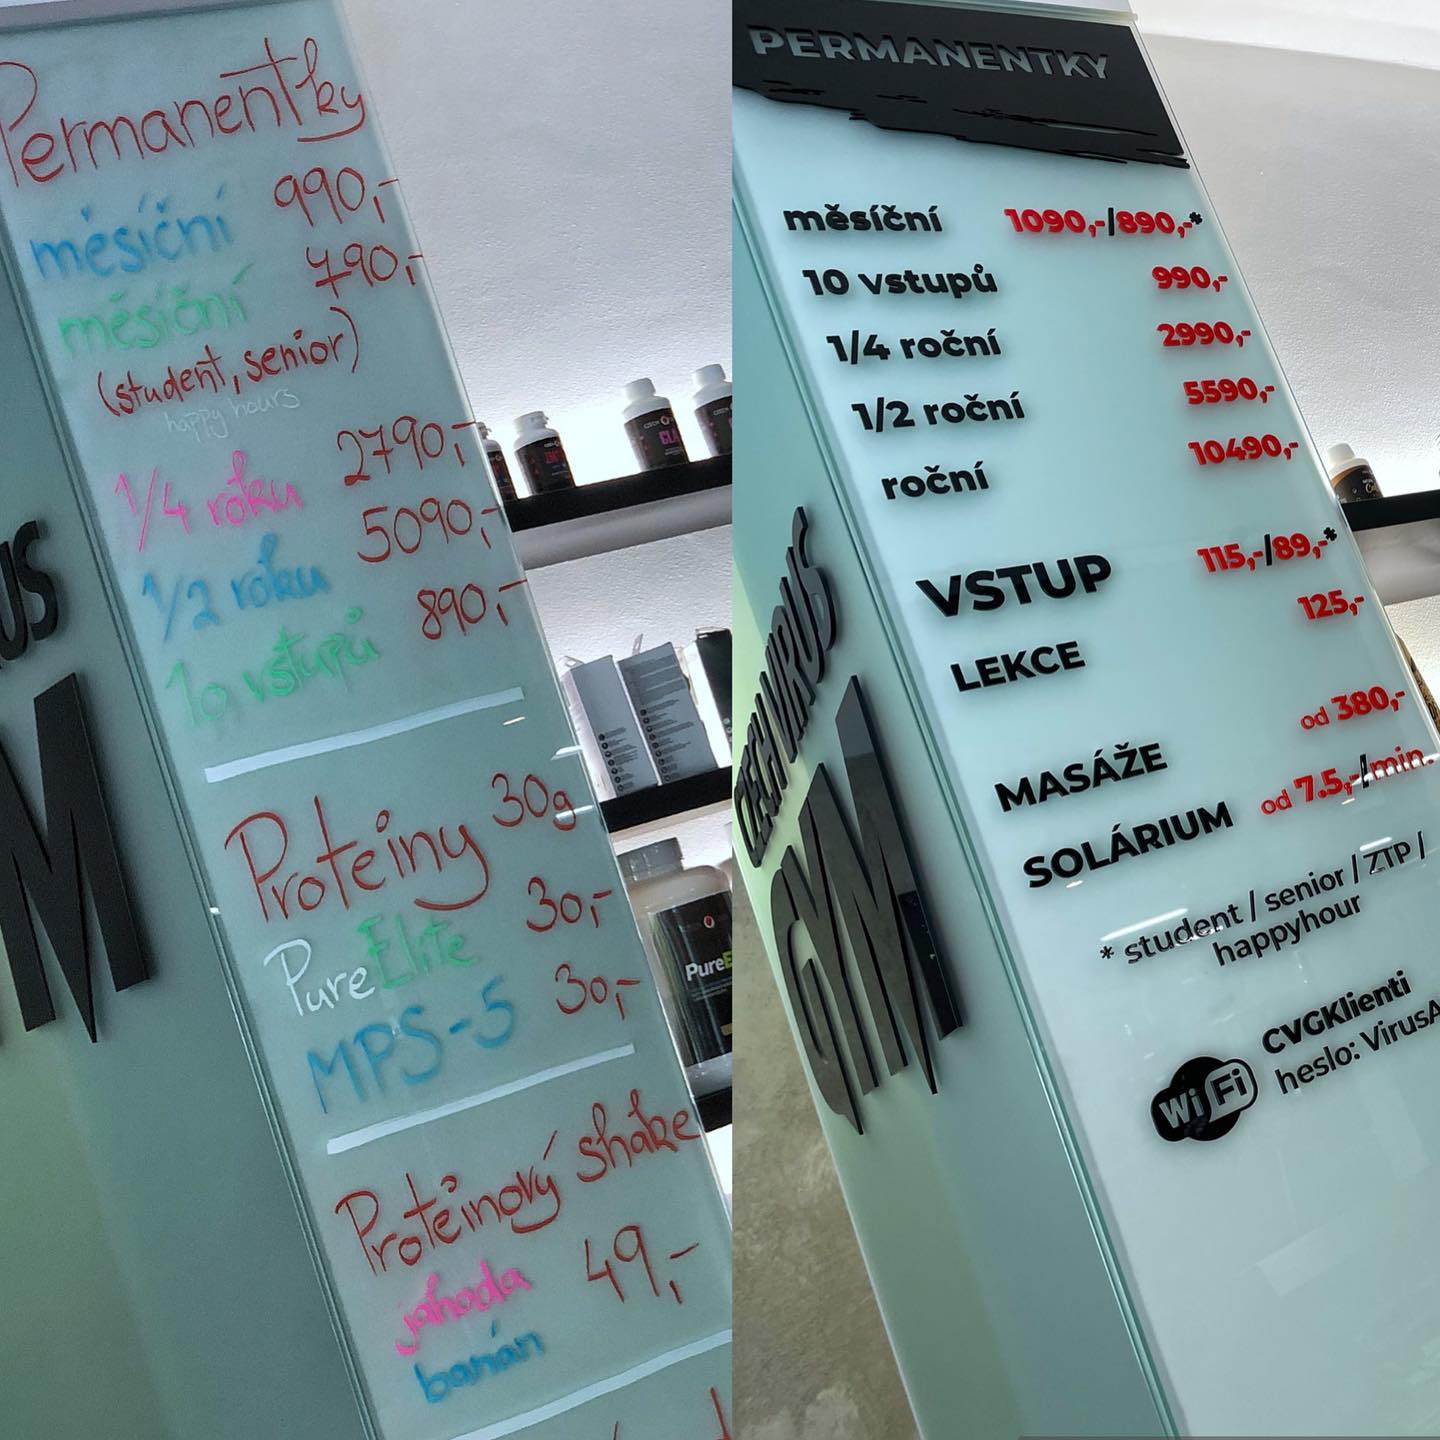 Permanentky
měsíční 990,-
měsíční 790,-
(student, senior)
happy hours
1/4 roku 2790,-
1/2 roku 5090,-
10 vstupů 890,-
Proteiny 30g
PureElite 30,-
MPS-5 30,-
Proteinový shake
jahoda 49,-
banán
US
M
PERMANENTKY
měsíční 1090,-/890,-*
10 vstupů 990,-
1/4 roční 2990,-
1/2 roční 5590,-
roční 10490,-
VSTUP 115,-/89,-*
LEKCE 125,-
MASÁŽE od 380,-
SOLÁRIUM od 7.5,-/min.
* student / senior / ZTP /
happyhour
WiFi
CVGKlienti
heslo: VirusA
CZECH VIRUS
GYM
PureE